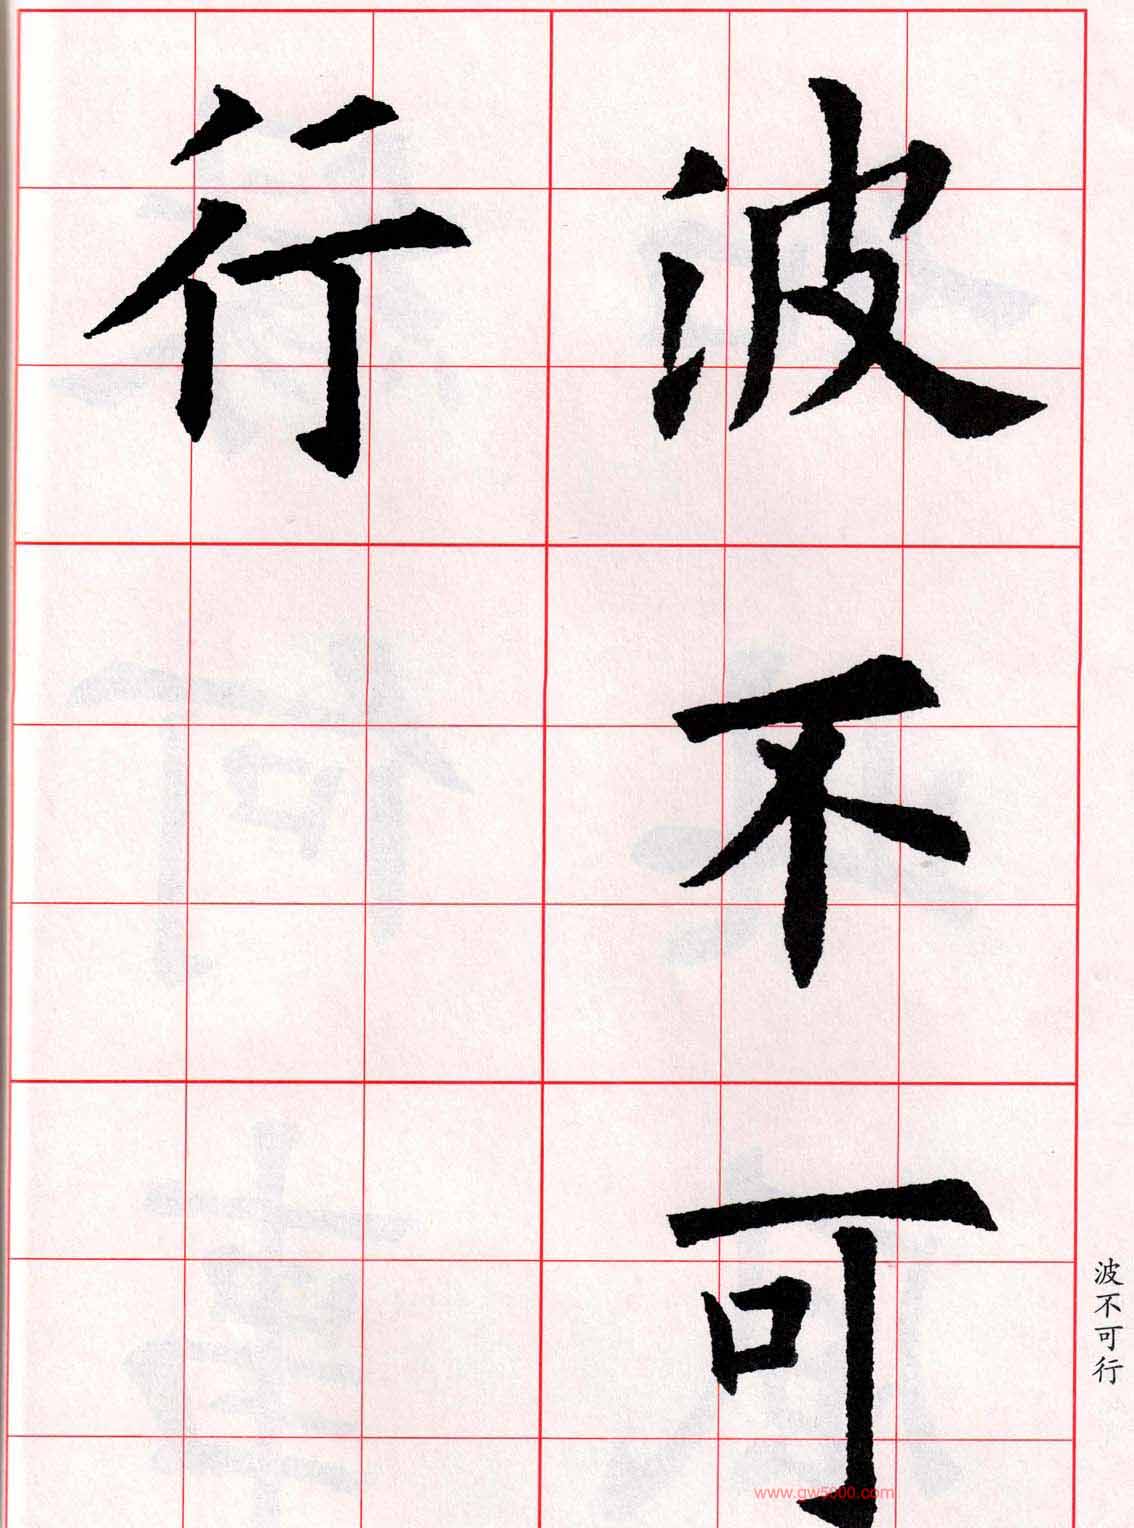 波不可
行
波不可行
www.gw5000.com